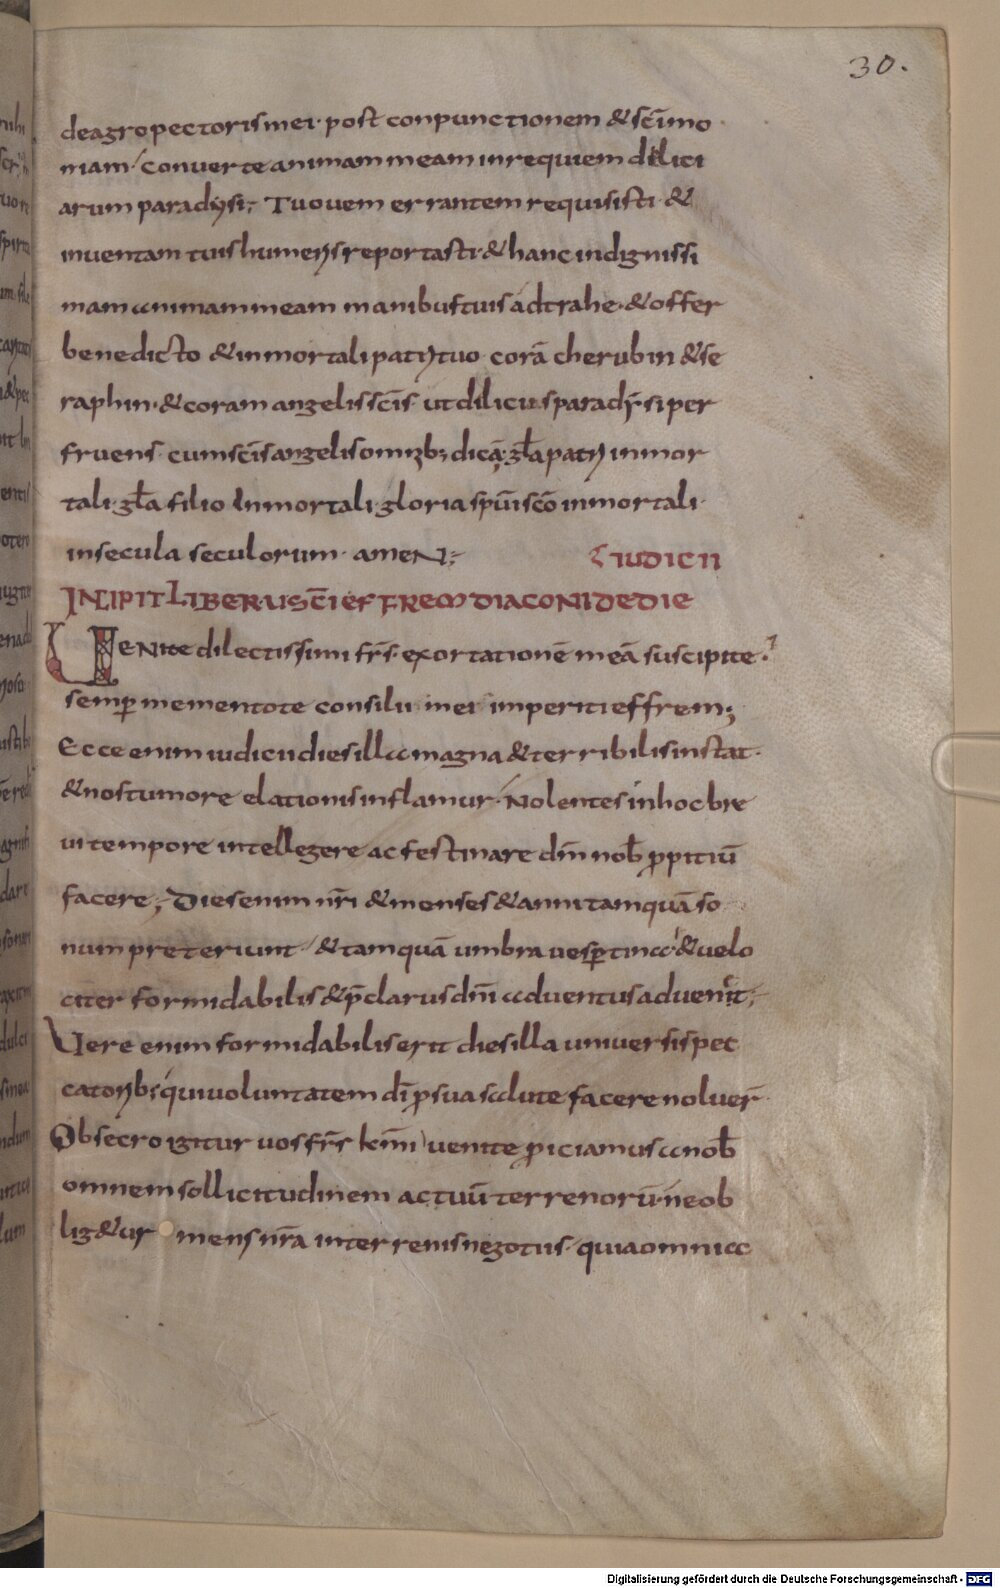 30.
de agro pectoris mei· post conpunctionem & scīmo
niam· Converte animam meam in requiem dilici
arum paradysi;· Tu ovem errantem requisisti· &
inventam tuis humeris reportasti· & hanc indignissi
mam animam meam manibus tuis adtrahe· & offer
benedicto & inmortali patri tuo· corā cherubin & se
raphin· & coram angelis scīs· ut diliciis paradysi per
fruens· cum scīs angelis omnib; dicā; gła patri inmor
tali· gła filio inmortali· gloria spūi scō inmortali·
in secula seculorum· ameN;·
iudicii
INCIPIT LIBER·I·U SCĪ EFFREM DIACONI DE DIE
VENite dilectissimi frs̄· exortationē meā suscipite·
semp̄ mementote consilii mei imperiti effrem;
Ecce enim iudicii dies illa magna & terribilis instat·
& nos tumore elationis inflamur· Nolentes in hoc bre
vi tempore intellegere ac festinare dm̄ nob̄ p̄pitiū
facere;· Dies enim nr̄i & menses & anni tamquā so
num pretereunt· & tamquā umbra vesp̄tina· & velo
citer formidabilis & p̄clarus dn̄i adventus advenit;·
Vere enim formidabilis erit dies illa universis pec
catorib; qui voluntatem dī p̄ sua salute facere noluer̄
Obsecro igitur vos frs̄ km̄i venite p̄iciamus a nob̄
omnem sollicitudinem actuū terrenorū· ne ob
lig&ur mens nr̄a in terrenis negotiis· quia omnia
Digitalisierung gefördert durch die Deutsche Forschungsgemeinschaft - DFG